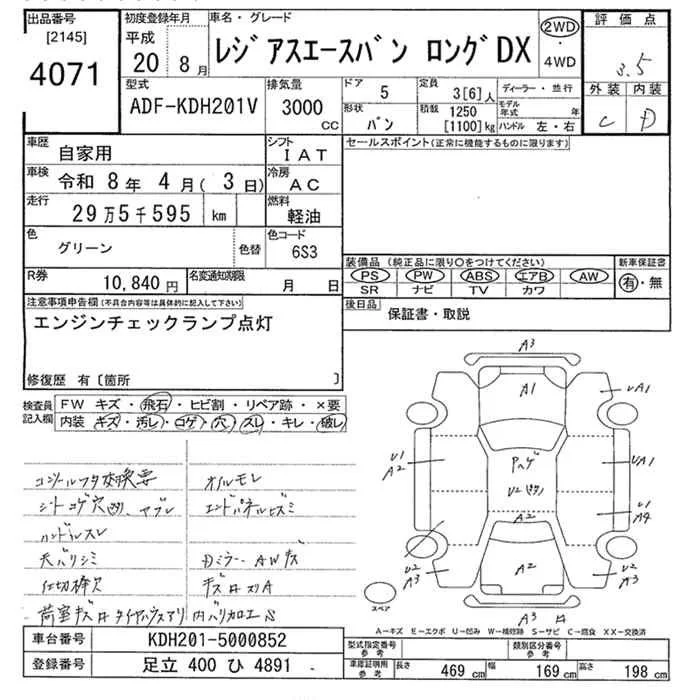 出品番号
[2145]
4071
初度登録年月
平成
20年 8月
車名・グレード
レジアスエースバン ロングDX
2WD
・
4WD
評価点
3.5
外装 内装
C D
型式
ADF-KDH201V
排気量
3000
CC
ドア 5
形状 バン
定員 3[6]人
積載 1250
[1100]kg
ディーラー・並行
モデル年式 年
ハンドル 左・右
車歴
自家用
シフト
IAT
セールスポイント(正常に機能するものに限ります)
車検
令和 8年 4月( 3日)
冷房
AC
走行
29万5千595 km
燃料
軽油
色
グリーン
色替
色コード
6S3
装備品 (純正品に限り○をつけてください)
PS PW ABS エアB AW
SR ナビ TV カワ
新車保証書
有・無
R券
10,840円
名変通知期限
月 日
後日品
保証書・取説
注意事項申告欄 (不具合内容等は具体的に記入して下さい)
エンジンチェックランプ点灯
修復歴 有〔箇所 〕
検査員記入欄
FW キズ・飛石・ヒビ割・リペア跡・×要
内装・キズ・汚レ・コゲ・穴・スレ・キレ・破レ
コンソールフタ交換要 オイルモレ
シートコゲ穴 、ヤブレ エンドパネルヒズミ
ハンドルスレ
天バリシミ Dミラー、AWキズ
仕切棒欠
荷室キズ 内バリカロエ
A3
A1
UA1
U1
A2
UA1
U1
A4
A2
A2
U2
A3
U2
A3
A3
スペア
A－キズ E－エクボ U－凹み W－補修跡 S－サビ C－腐食 XX－交換済
車台番号
KDH201-5000852
登録番号
足立 400 ひ 4891
型式指定番号
参考
類別区分番号
参考
車庫証明用
参考
長さ 469 cm 幅 169 cm 高さ 198 cm